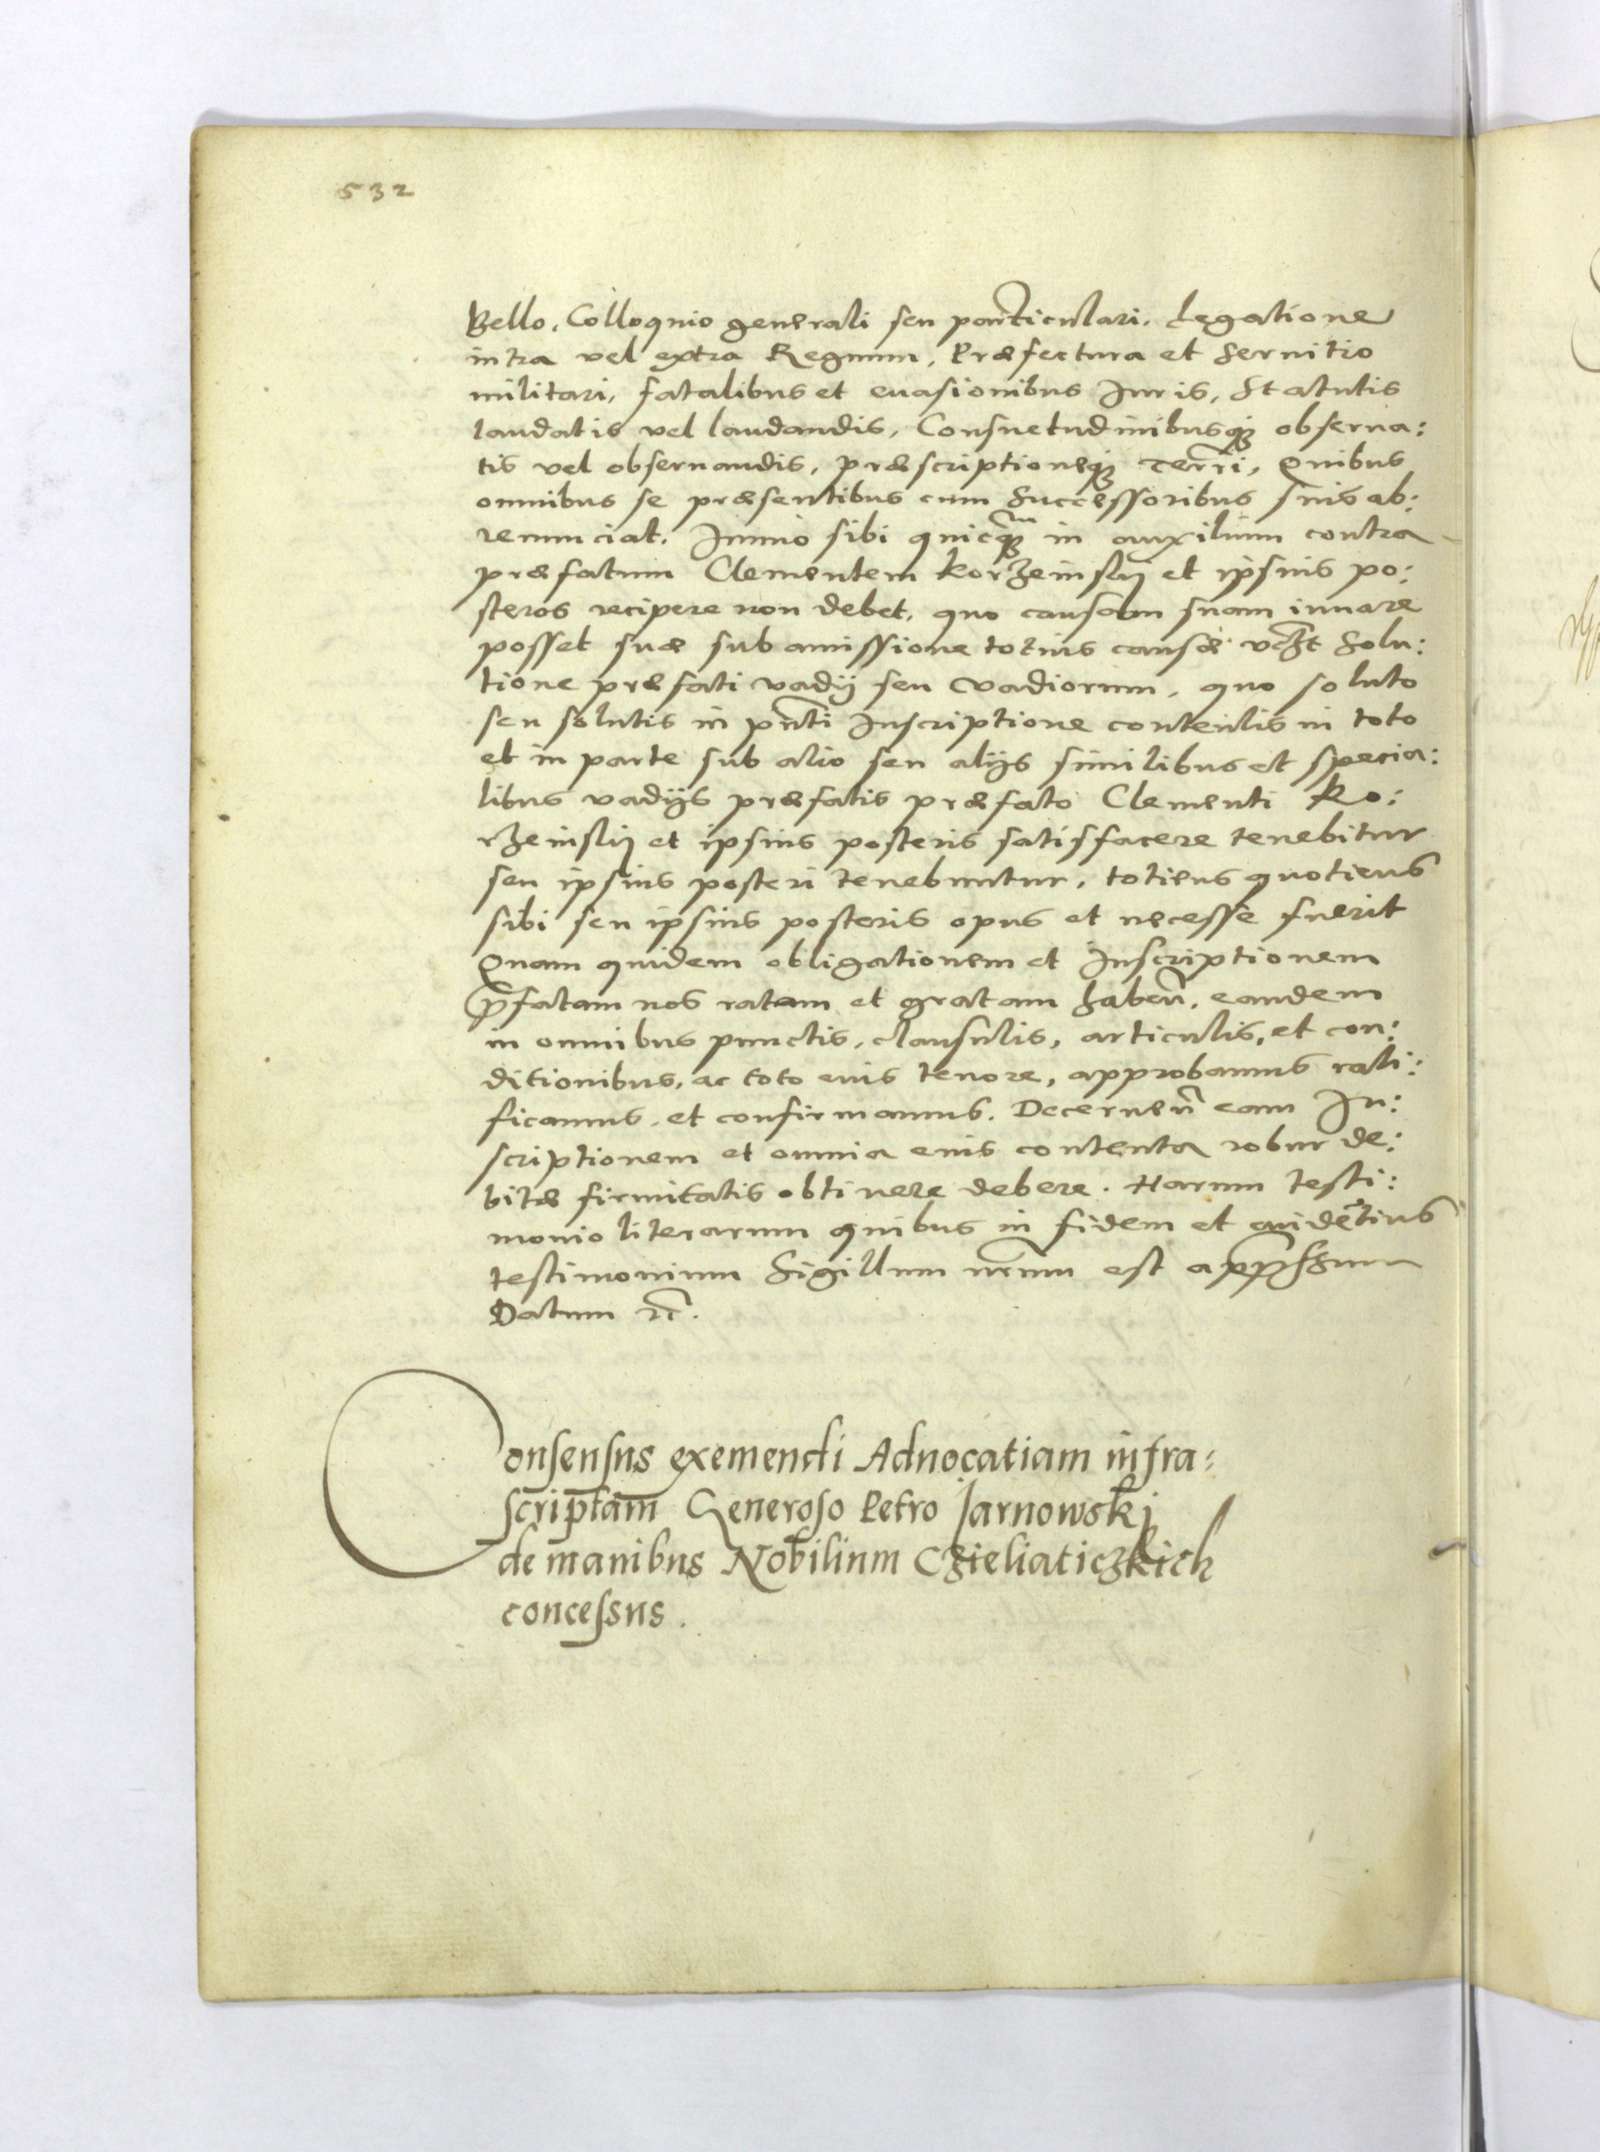 532
Bello, Colloquio generali seu particulari, Legatione
intra vel extra Regnum, Præfectura et Servitio
militari, fatalibus et evasionibus Iuris, Statutis
laudatis vel laudandis, Consuetudinibusq̃ observa:
tis vel observandis, præscriptioneq̃ terrī, Quibus
omnibus se præsentibus cum Successoribus suis ab:
renunciat. Immo sibi quicq̃ in auxilium contra
præfatum Clementem Korzeinsky et ipsius po:
steros recipere non debet, quo causam suam iuvare
posset suæ sub amissione totius causæ vc̃zt Solu:
tione præfati vadij seu vadiorum, quo soluto
seu solutis in pn̄ti Inscriptione contentis in toto
et in parte sub alio seu alijs similibus et specia:
libus vadijs præfatis præfato Clementi Ko:
rzeinsky et ipsius posteris satisfacere tenebitur
seu ipsius posteri tenebuntur, totiens quotiens
sibi seu ipsius posteris opus et necesse fuerit
Quam quidem obligationem et Inscriptionem
p̄fatam nos ratam et gratam haben̄, eandem
in omnibus punctis, clausulis, articulis, et con:
ditionibus, ac toto eius tenore, approbamus rati:
ficamus, et confirmamus. Decernen̄ eam In:
scriptionem et omnia eius contenta robur de:
bitæ firmitatis obtinere debere. Harum testi:
monio literarum quibus in fidem et evidētius
testimonium Sigillum nr̄um est app̄ssum
Datum etc̄.
Consensus exemendi Advocatiam infra:
scriptam Generoso Petro Jarnowski
de manibus Nobilium Czieliaticzkich
concessus.